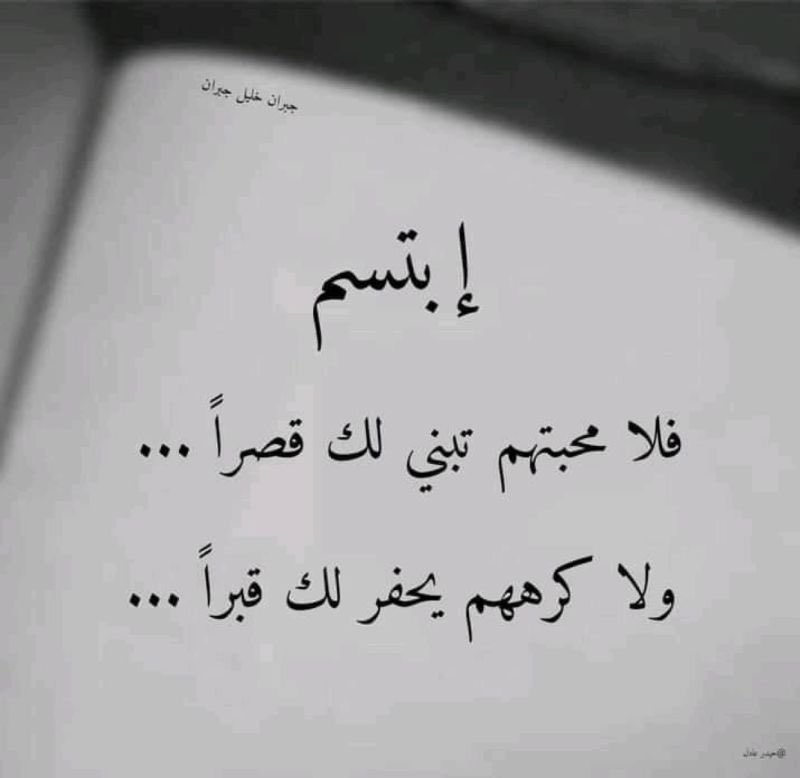 جبران خليل جبران
إبتسم
فلا محبتهم تبني لك قصراً ...
ولا كرههم يحفر لك قبراً ...
@حيدر عادل